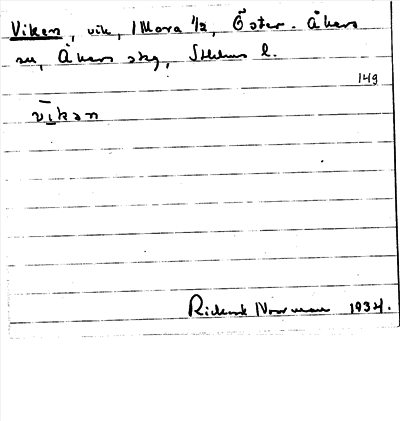 Viken, vik, 1 Mora ½, Öster-Åkers
sn, Åkers skg, Sthlms l.
149
vīkən
Rickard Norrman 1934.